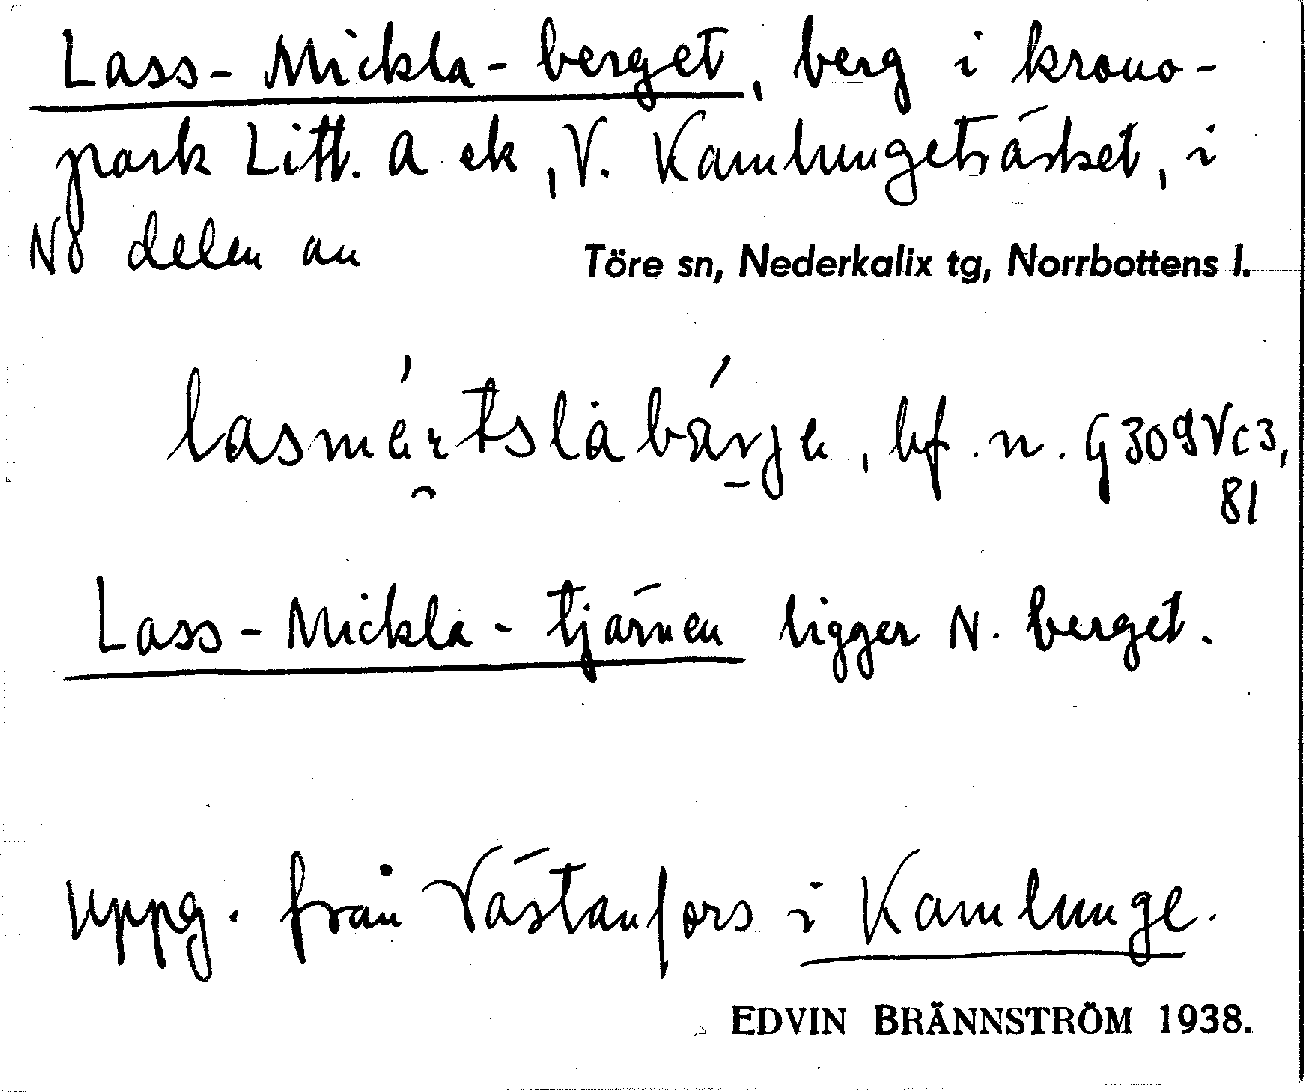 Lass-Mickla-berget, berg i krono-
park Litt. A ek, V. Kamlungeträsket, i
NÖ delen av
Töre sn, Nederkalix tg, Norrbottens l.
bf. n. G 309 Vc 3,
81
Lass-Mickla-tjärnen ligger N. berget.
Uppg. från Västanfors i Kamlunge.
EDVIN BRÄNNSTRÖM 1938.